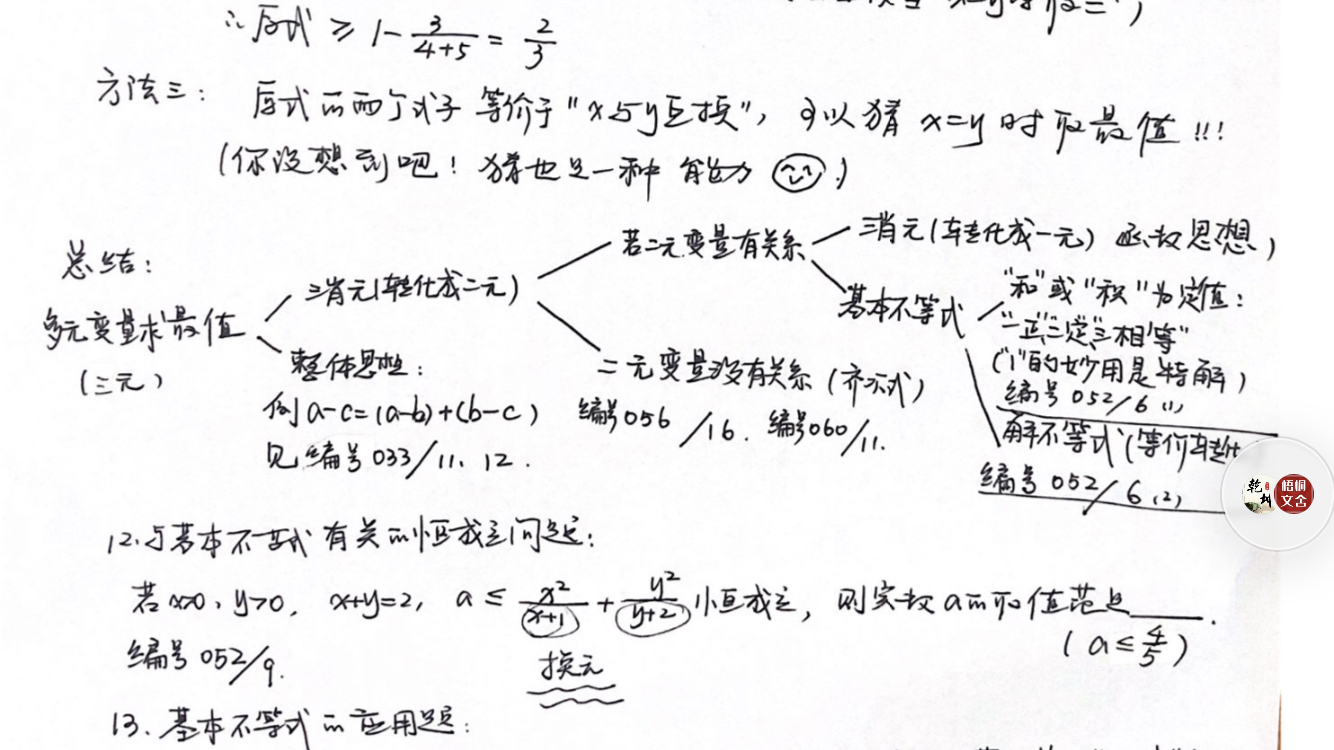 ∴原式 ≥ 1 - 3/(4+5) = 2/3
方法三: 原式的两个式子等价于"x与y互换", 可以猜 x=y 时取最值!!!
(你没想到吧! 猜也是一种能力)
总结:
多元变量求最值
(三元)
消元(转化成二元)
若二元变量有关系
消元(转化成一元) 函数思想)
基本不等式
"和"或"积"为定值:
"一正""二定""三相等"
("1"的妙用是特解)
编号 052/6 (1)
解不等式(等价转化
编号 052/6 (2)
二元变量没有关系(齐次式)
编号056/16. 编号060/11.
整体思想:
例 a-c=(a-b)+(b-c)
见编号033/11、12.
12.与基本不等式有关的恒成立问题:
若x>0, y>0, x+y=2, a ≤ x²/(x+1) + y²/(y+2) 恒成立, 则实数a的取值范是____.
(a ≤ 4/5)
编号 052/9.
换元
13.基本不等式的应用题:
乾
梧桐
文舍